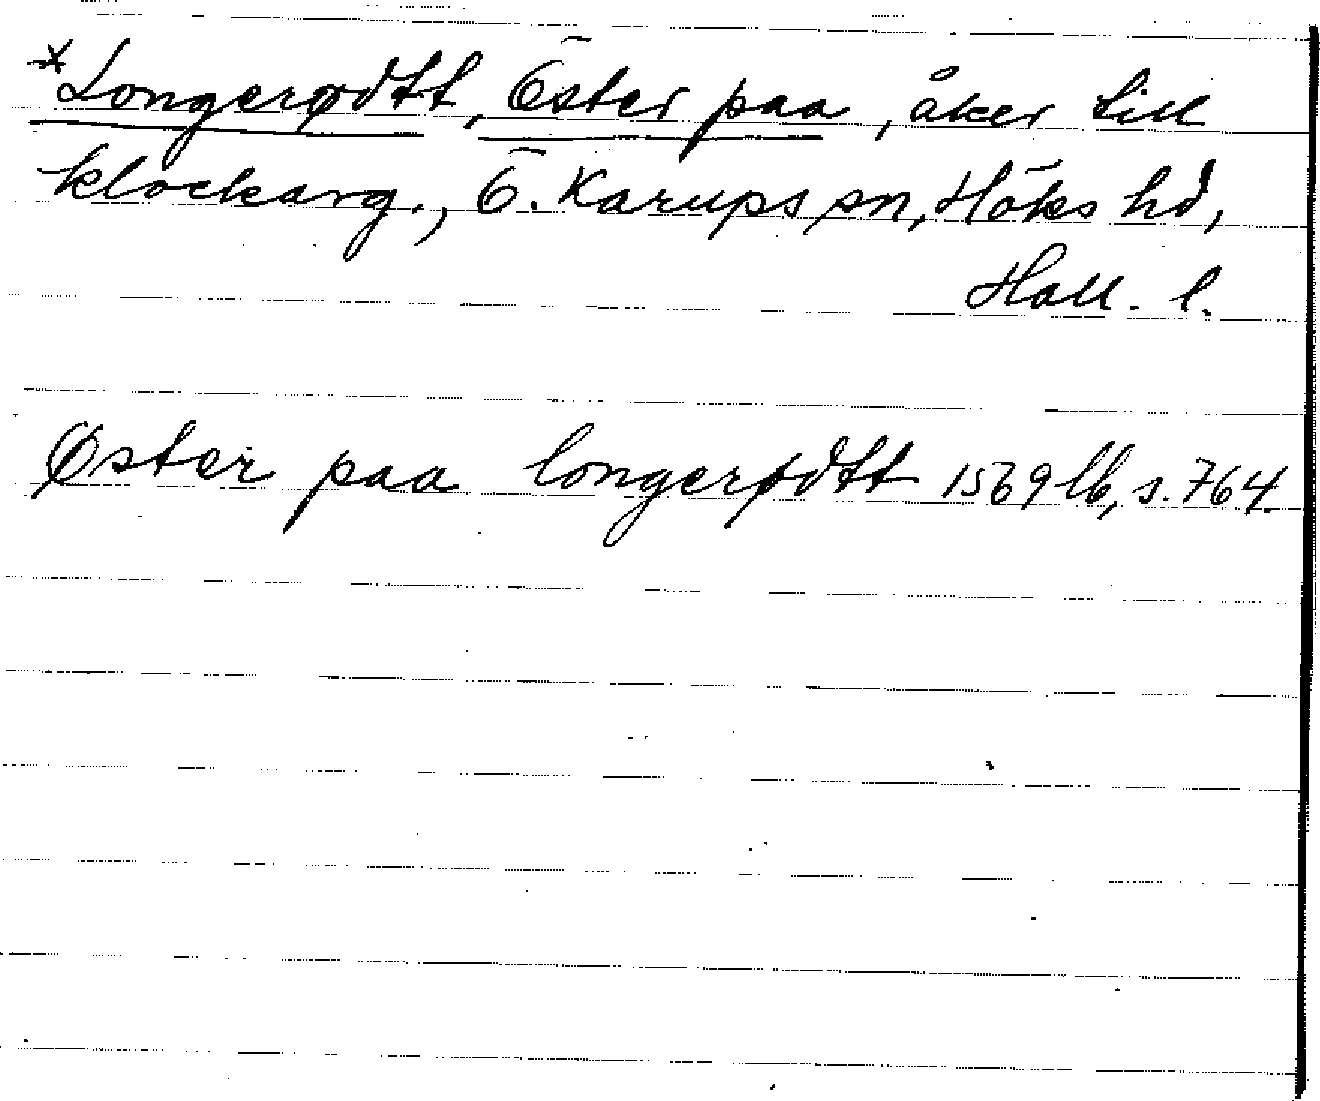 *Longerødtt, Öster paa, åker till
klockarg., Ö. Karups sn, Höks hd,
Hall. l.
Øster paa longerødtt 1569 lb, s. 764.